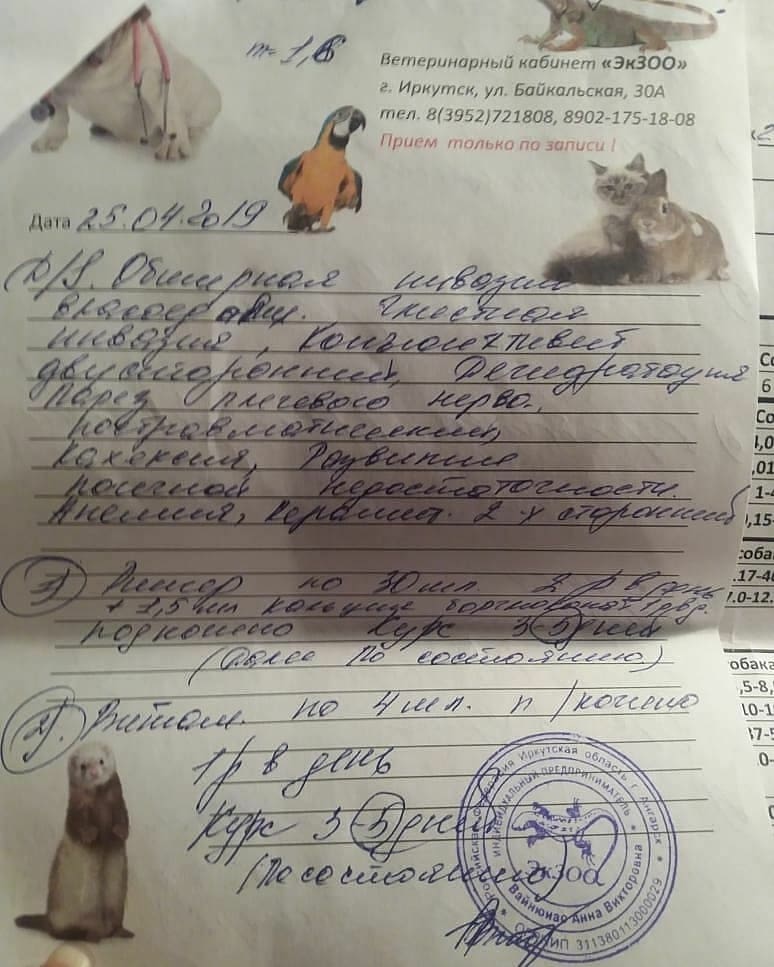 m= 1,8
Ветеринарный кабинет «ЭкЗОО»
г. Иркутск, ул. Байкальская, 30А
тел. 8(3952)721808, 8902-175-18-08
Прием только по записи !
Дата 25.04.2019
D/S. Обширная инвазия
власоедами. Глистная
инвазия, Конъюнктивит
двусторонний, Дегидратация
Парез плечевого нерва,
посттравматический,
Кахексия, Развитие
почечной недостаточности.
Анемия, Кератит. 2-х сторонний
1) Рингер по 30 мл. 2 р в день
+ 1,5 мл кальция борглюконат 1 р в д.
подкожно Курс 3-5 дней
(Далее по состоянию.)
2). Витам. по 4 мл. п/кожно
1 р в день
Курс 3-5 дней
(По состоянию)
Иркутская область г. Ангарск
ИНДИВИДУАЛЬНЫЙ ПРЕДПРИНИМАТЕЛЬ
ЭкЗОО
Анна Викторовна
311380113000029